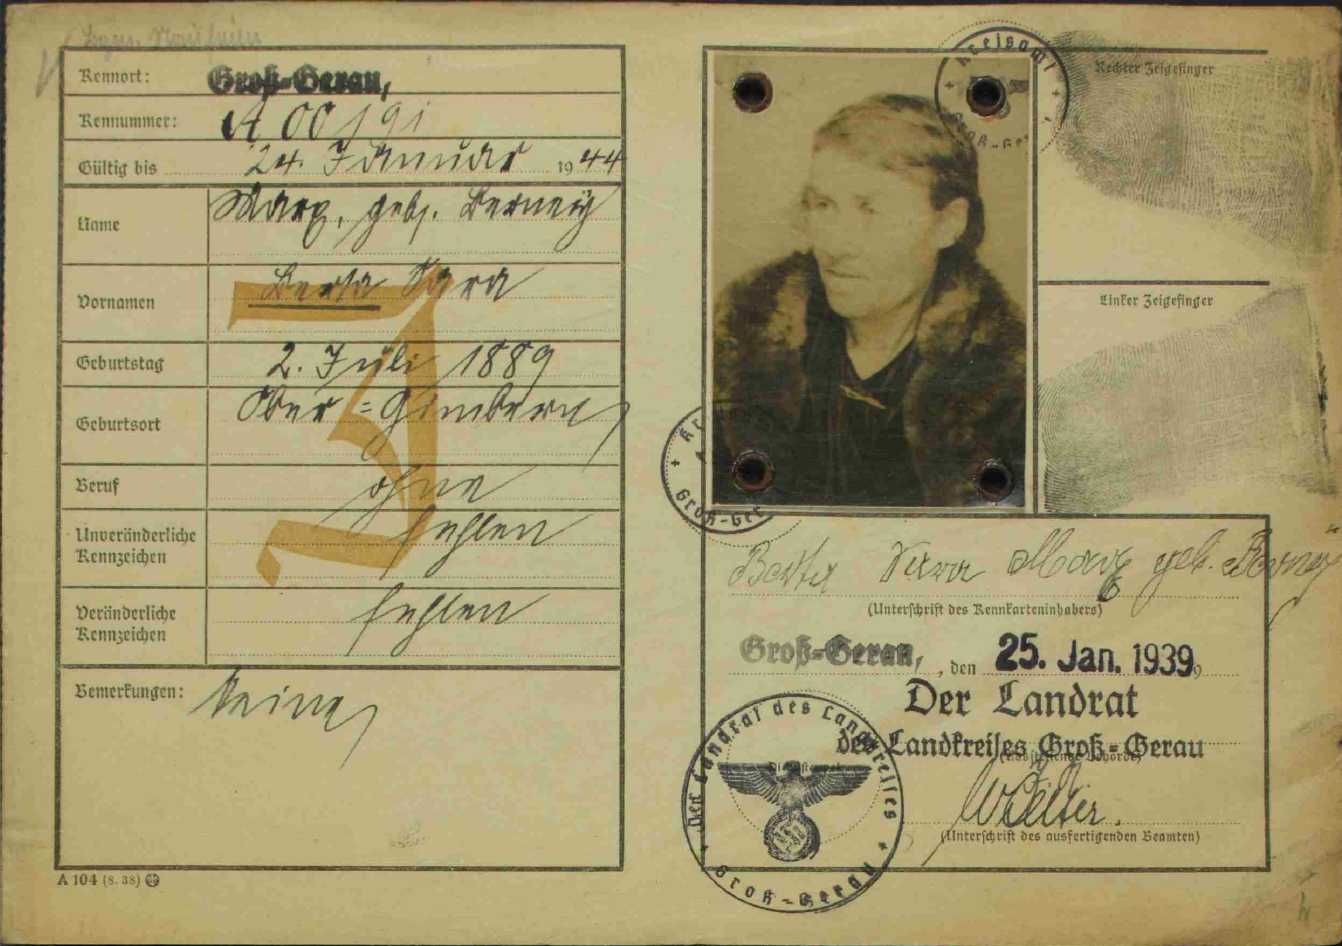 Kennort: Groß-Gerau,
Kennummer: A 00191
Gültig bis 24. Januar 1944
Name Marx, geb. Berney
Vornamen Berta Sara
Geburtstag 2. Juli 1889
Geburtsort Ober-Gimbern
Beruf ohne
Unveränderliche
Kennzeichen fehlen
Veränderliche
Kennzeichen fehlen
Bemerkungen: Keine
J
A 104 (8. 38)
Kreisamt
Groß-Ger
Rechter Zeigefinger
Linker Zeigefinger
Kr
Groß-Ger
Berta Sara Marx geb. Berney
(Unterschrift des Kennkarteninhabers)
Groß-Gerau, , den 25. Jan. 1939
Der Landrat
des Landkreises Groß-Gerau
(Ausstellende Behörde)
(Unterschrift des ausfertigenden Beamten)
Der Landrat des Landkreises
Groß-Gerau